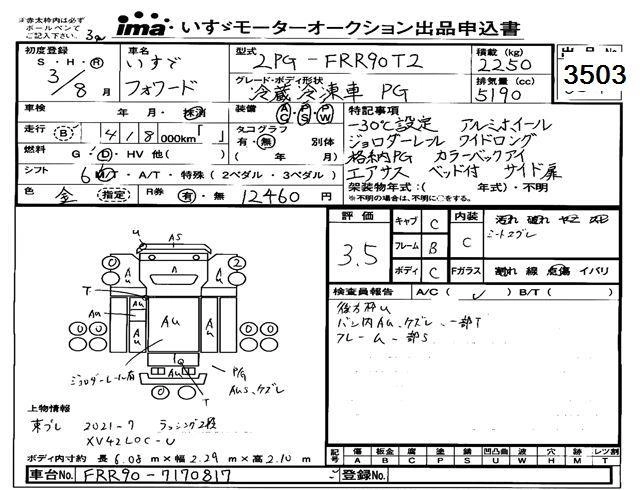 ※赤太枠内は必ず
ボールペンで
ご記入下さい。
ima いすゞモーターオークション出品申込書
初度登録 S・H・R 3/8月
車名 いすゞ フォワード
型式 2PG-FRR90T2
グレード・ボディ形状 冷蔵冷凍車 PG
積載(kg) 2250
排気量(cc) 5190
3503
車検 年・月・抹消
装備 AC PS PW
走行 (B) 418,000km「 」
タコグラフ 有・無 別体 ( 年/ 月)
燃料 G・D・HV 他( )
シフト 6 M/T・A/T・特殊(2ペダル・3ペダル)
色 金 (指定) R券 有・無 12460円
特記事項
-30℃設定 アルミホイール
ジョロダーレール ワイドロング
格納PG カラーバックアイ
エアサス ベッド付 サイド扉
架装物年式:( 年式)・不明
※不明の場合は、不明に○をする。
評価 3.5
キャブ C
フレーム B
ボディ C
内装 C
汚れ 破れ
ミートズレ
Fガラス 割れ 線 点傷 イバリ
検査員報告 A/C( ✓ ) B/T( )
後方枠U
バン内AU、ケズレ、一部T
フレーム一部S
U AS
2 A U
T
AU
AU
AU
Q
T
ジョロダーレール有
P/G
AUS、ケズレ
上物情報
東プレ 2021-7 ラッシング2段
XV42LOC-U
ボディ内寸 約 長 6.08m×幅 2.29m×高 2.10m
記号 傷A 板金B 腐C 塗P 錆S 凹凸曲U 波W 穴H 無M レツ割T
車台No. FRR90-7170817
登録No.